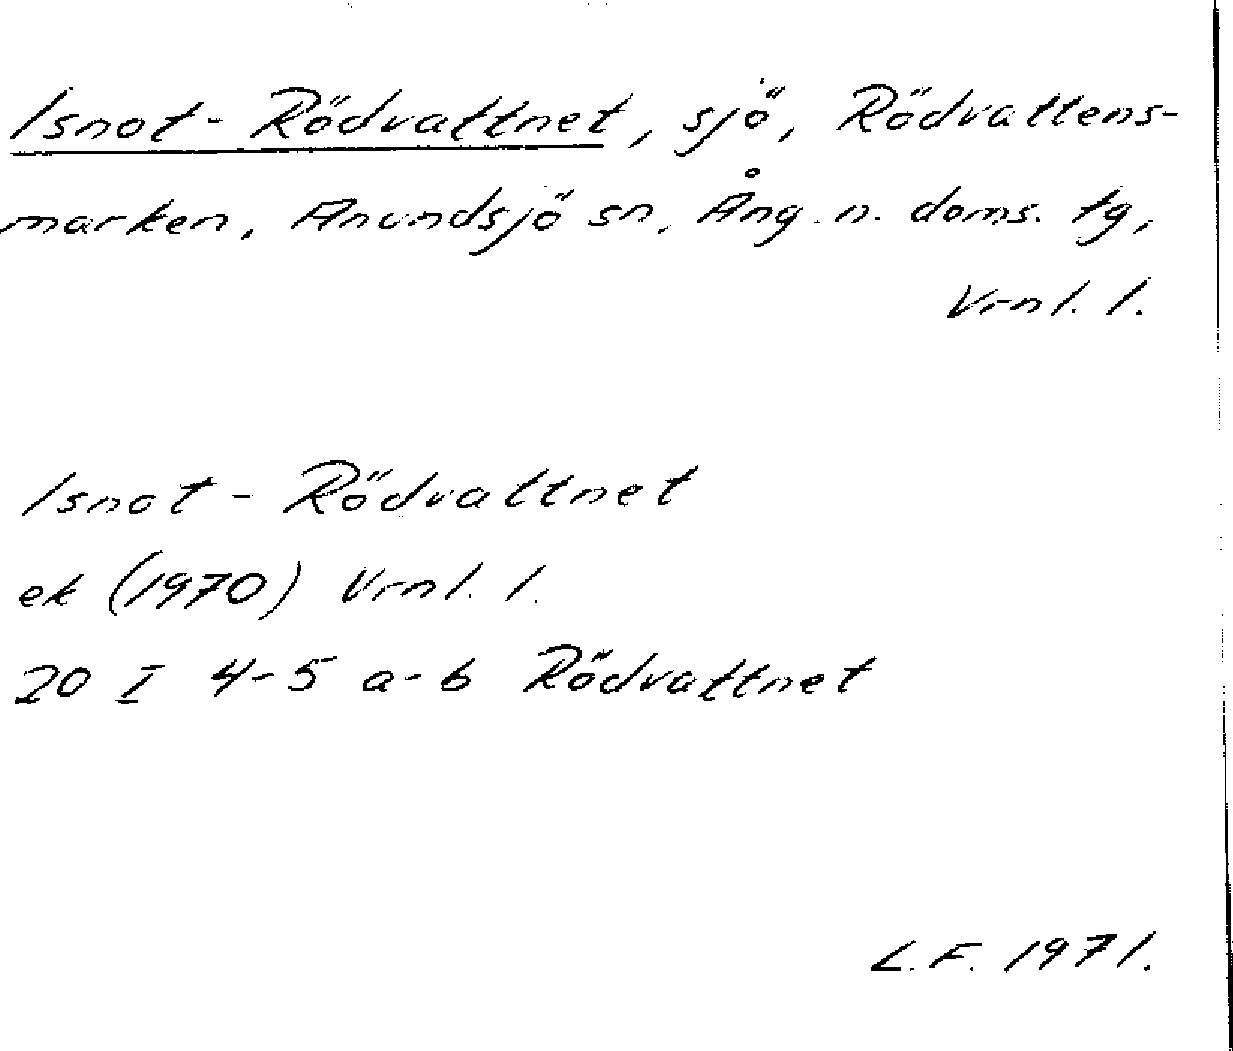 Isnot-Rödvattnet, sjö, Rödvattens-
marken, Anundsjö sn, Ång. n. doms. tg,
Vrnl. l.
Isnot-Rödvattnet
ek (1970) Vrnl. l.
20 I 4-5 a-b Rödvattnet
L.F. 1971.